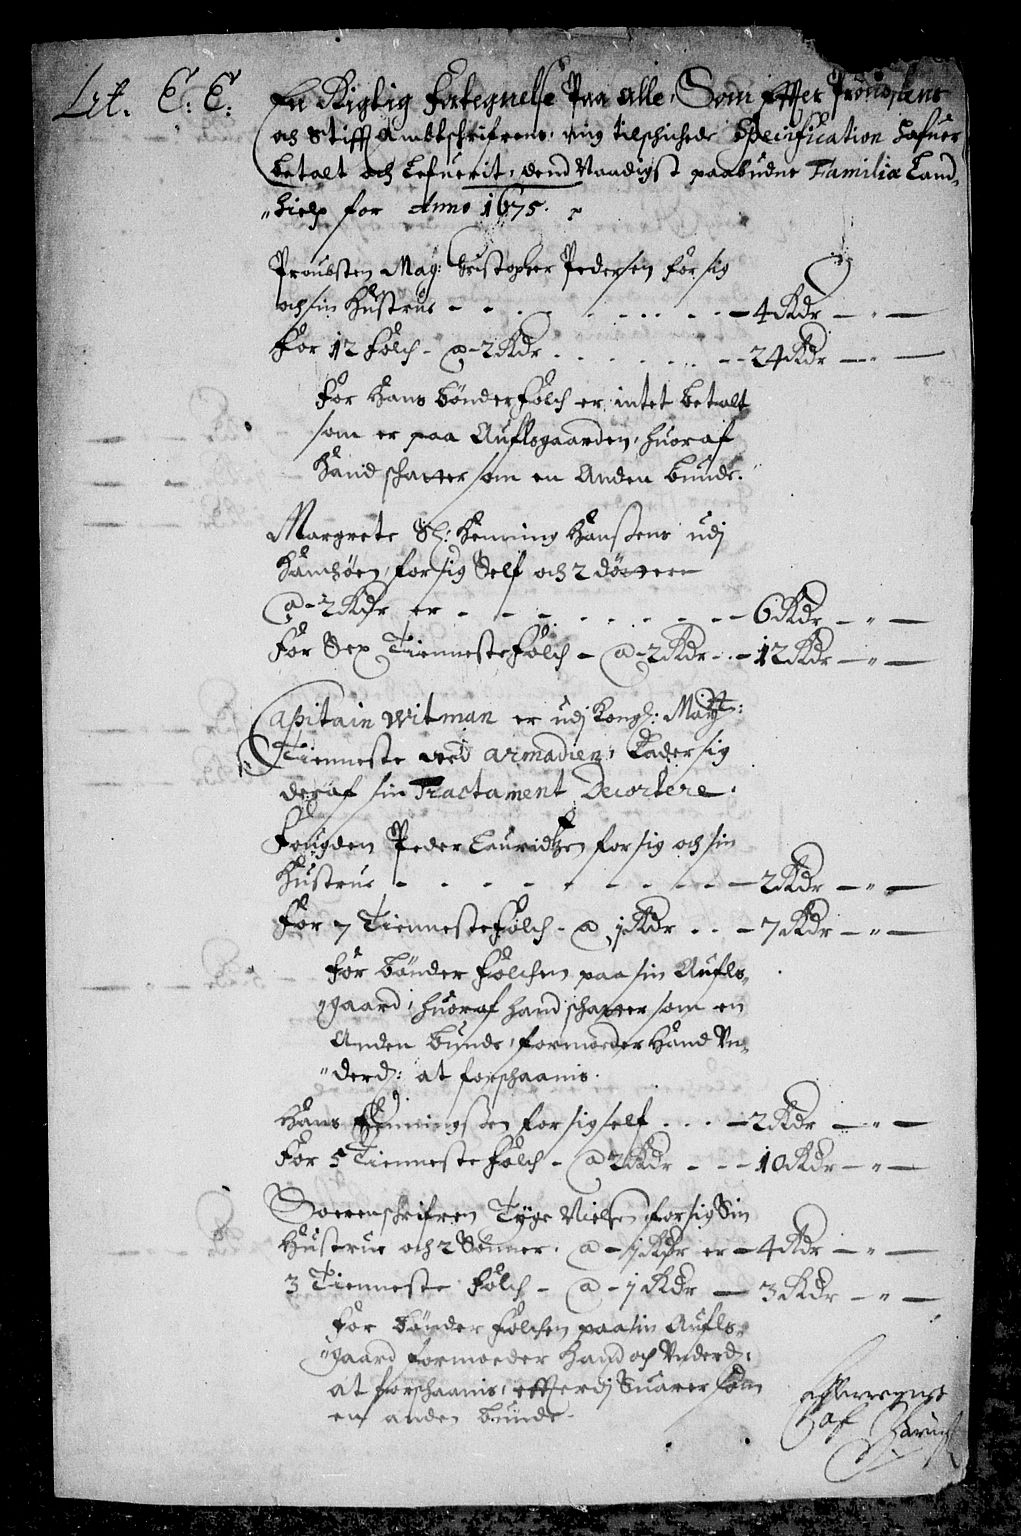 Lit. E: E:
En Rigtig Fortegnelse Paa alle, Som effter Proustens
och Stiffts Ambtschrifrens, mig tilschichede Specification hafuer
betalt och Lefuerit, dend Naadigst paabudne Familiæ Land-
"hielp for Anno 1675.
Proubsten Mag: Cristopher Pedersen for sig
och sin Hustrue - - - - 4 Rdr - " -
For 12 Folch - a - 2 Rdr - - - 24 Rdr - " -
For Hans bønder Folch er intet betalt
som er paa Auflsgaarden, huoraf
hand schatter som en Anden bunde.
Margrete Sl: Henning Hanssens udj
for sig Self och 2 døttere
a - 2 Rdr er - - - - 6 Rdr - " -
For Sex Tienneste Folch - a - 2 Rdr - - 12 Rdr - " -
Capitain Witman er udj Kongl: Maytt:
Tienneste ved Armadien, Lader sig
deraf sin Tractament Decortere.
Fougden Peder Lauridtzen for sig och sin
Hustrue - - - - - 2 Rdr - " -
For 7 Tienneste Folch - a 1 Rdr - - - 7 Rdr - " -
For bønder Folchen paa sin Aufls-
"gaard, huoraf hand schatter som en
Anden bunde, formoeder hand Un-
"derd: at forschaanis.
Hans Henningssen for sig self - - - 2 Rdr - " -
For 5 Tienneste Folch - a 2 Rdr - - - 10 Rdr - " -
Soerenschrifren Tyge Nielsen for sig Sin
Hustrue och 2 Sønner, a - 1 Rdr er - 4 Rdr - " -
3 Tienneste Folch - a - 1 Rdr - 3 Rdr - " -
For bønder Folchen paa sin Aufls-
"gaard formoeder hand och Underd:
at forschaanis, effterdj Suarer som
en anden bunde.
af